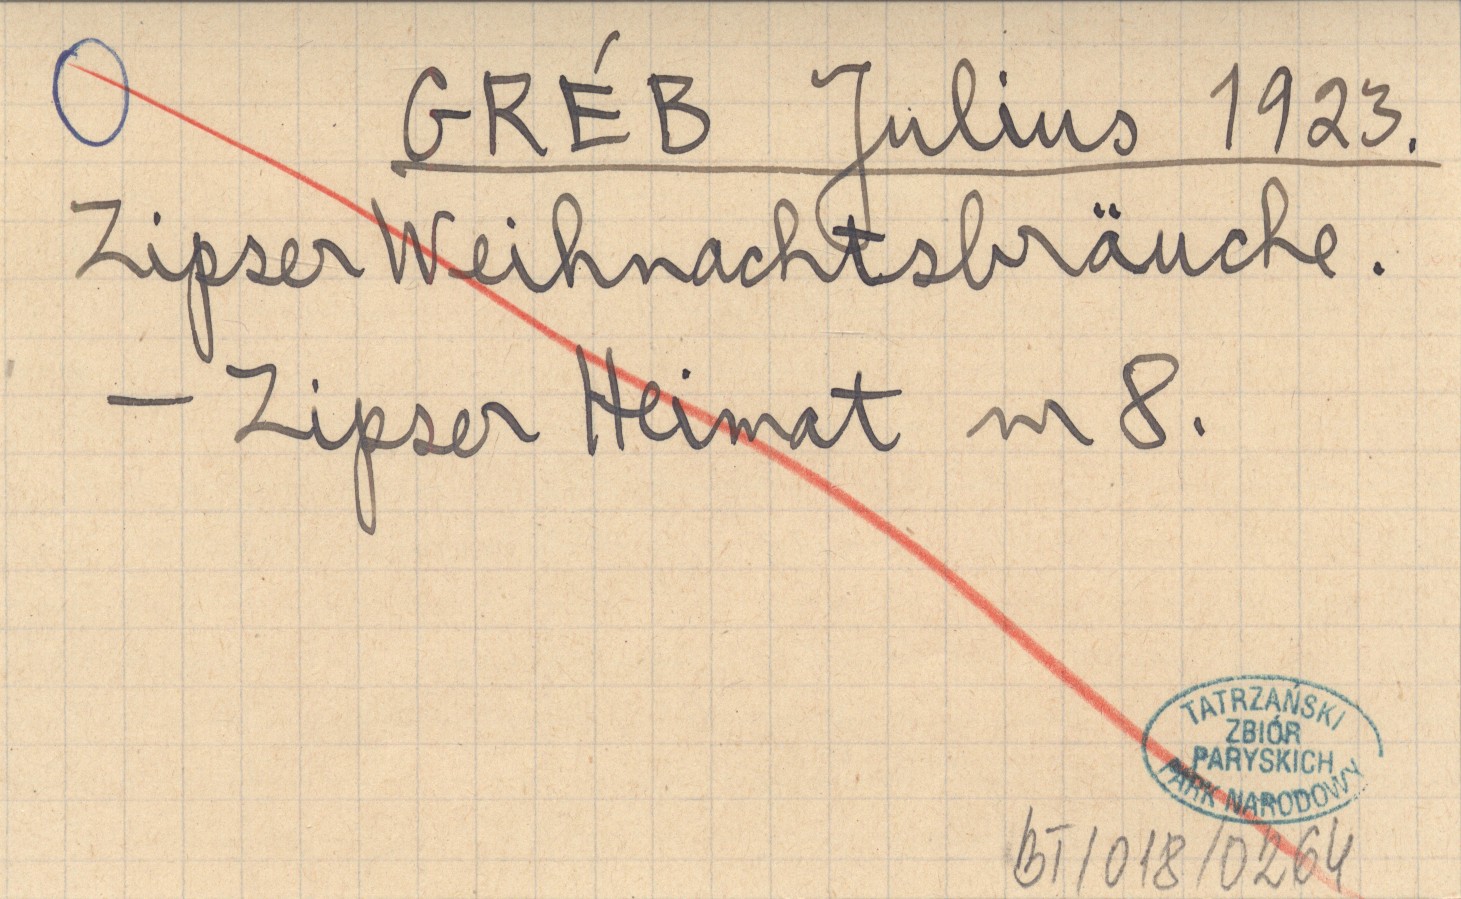 GRÉB Julius 1923.
Zipser Weihnachtsbräuche.
— Zipser Heimat nr 8.
TATRZAŃSKI
ZBIÓR
PARYSKICH
PARK NARODOWY
BT/018/0264